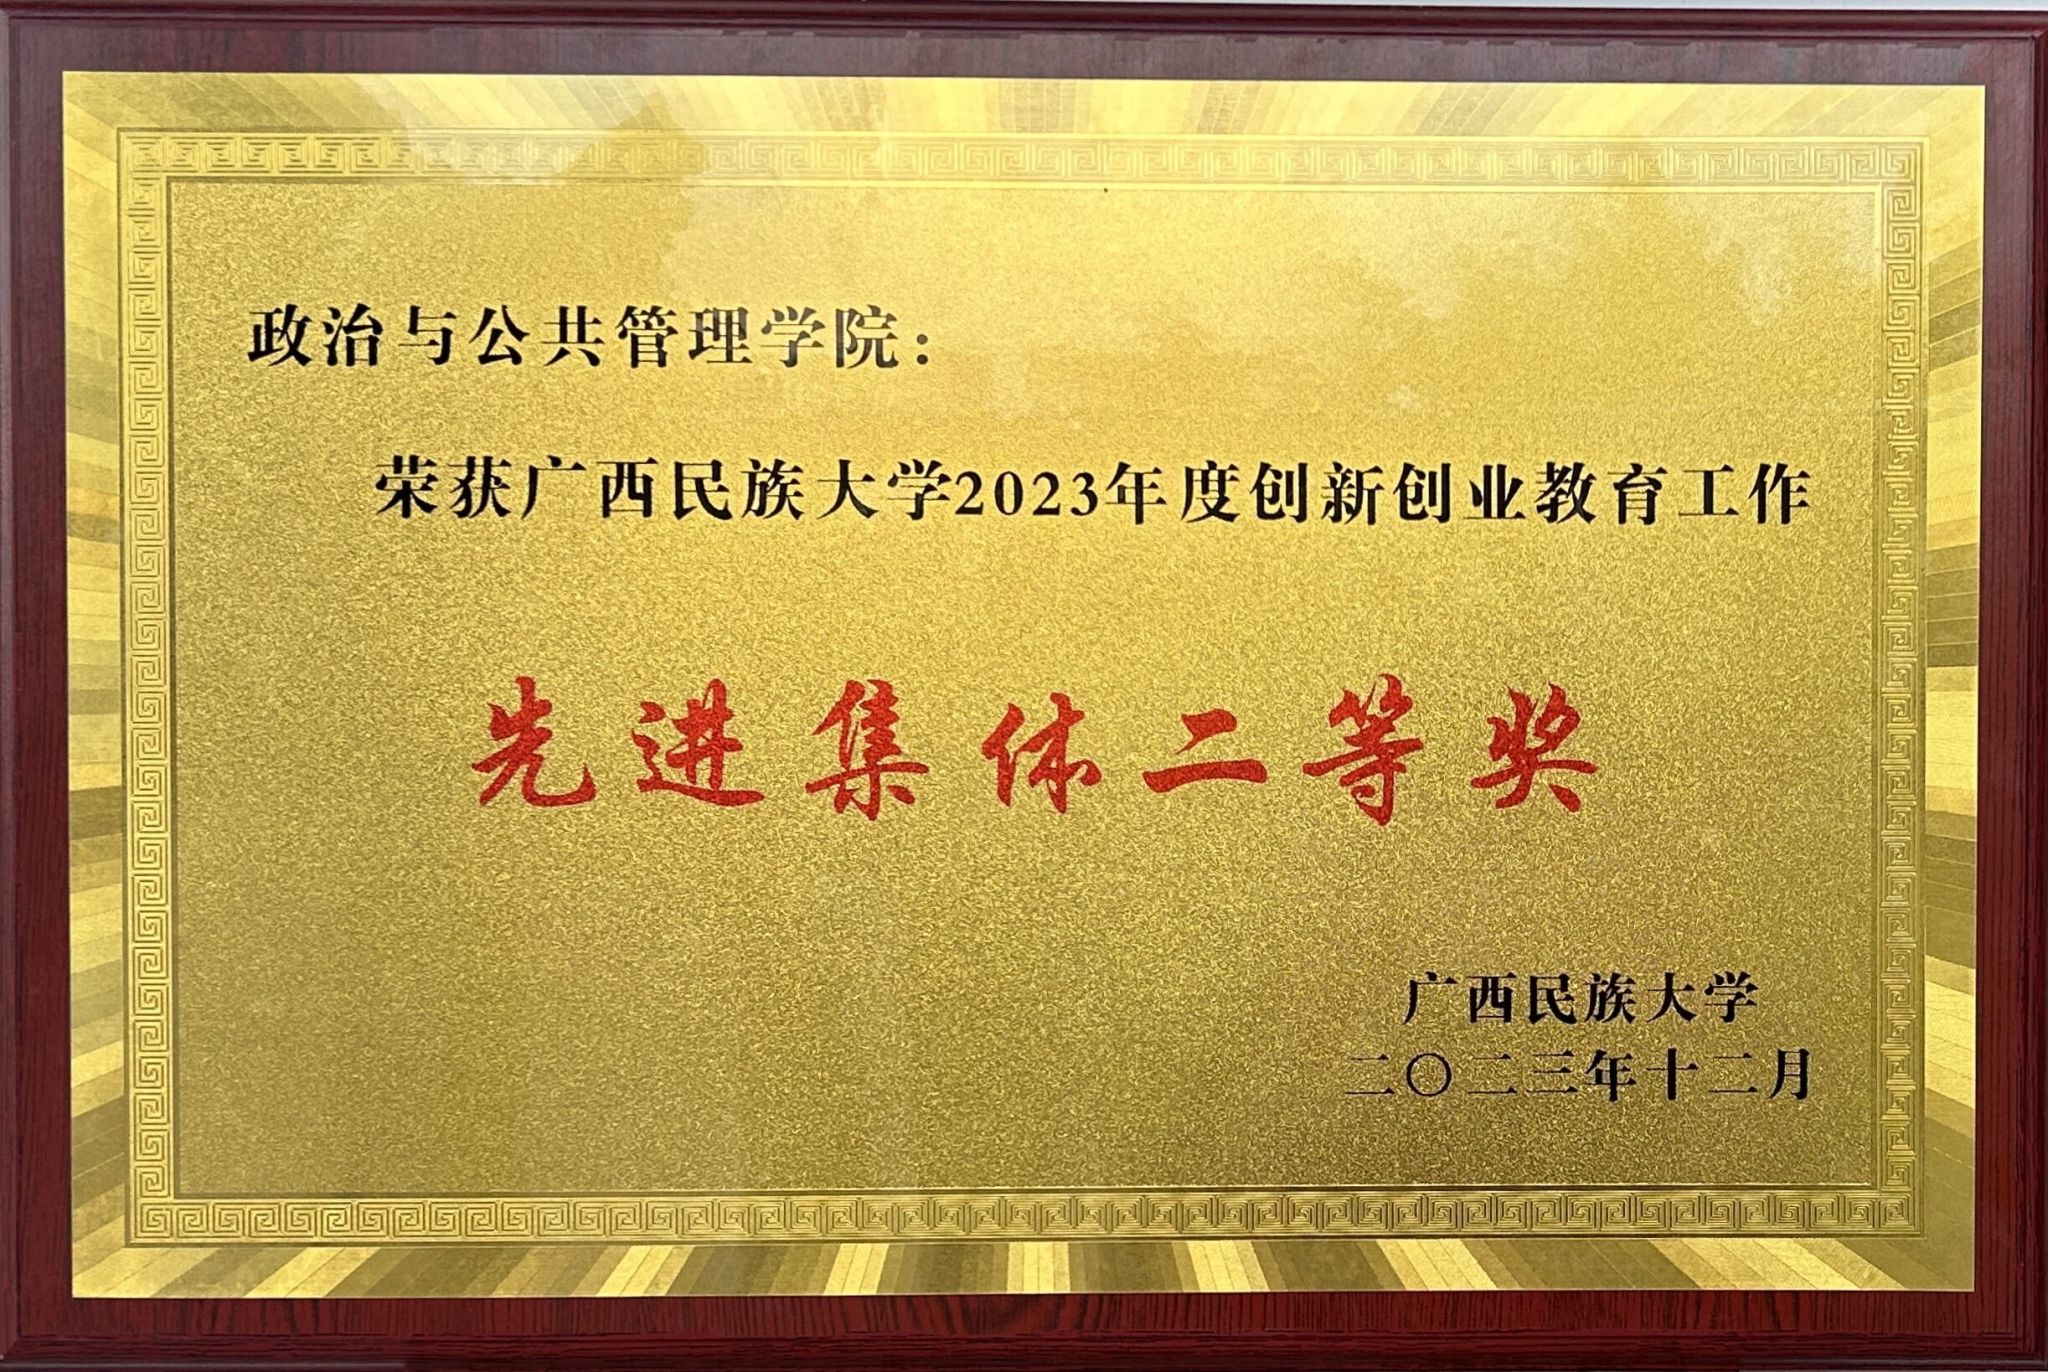 政治与公共管理学院：
荣获广西民族大学2023年度创新创业教育工作
先进集体二等奖
广西民族大学
二〇二三年十二月